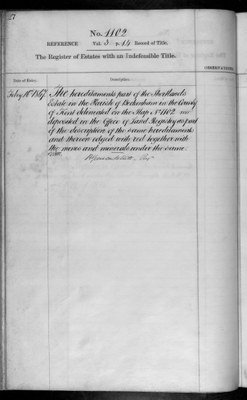 27
No. 1102
REFERENCE Vol. 3 p. 14 Record of Title.
The Register of Estates with an Indefeasible Title.
OBSERVATIONS.
Date of Entry. Description.
Feby 16th 1867 The hereditaments part of the Shortlands
Estate in the Parish of Beckenham in the County
of Kent delineated on the Map No 1102
deposited in the Office of Land Registry as part
of the description of the same hereditaments
and thereon edged with red together with
the mines and minerals under the same